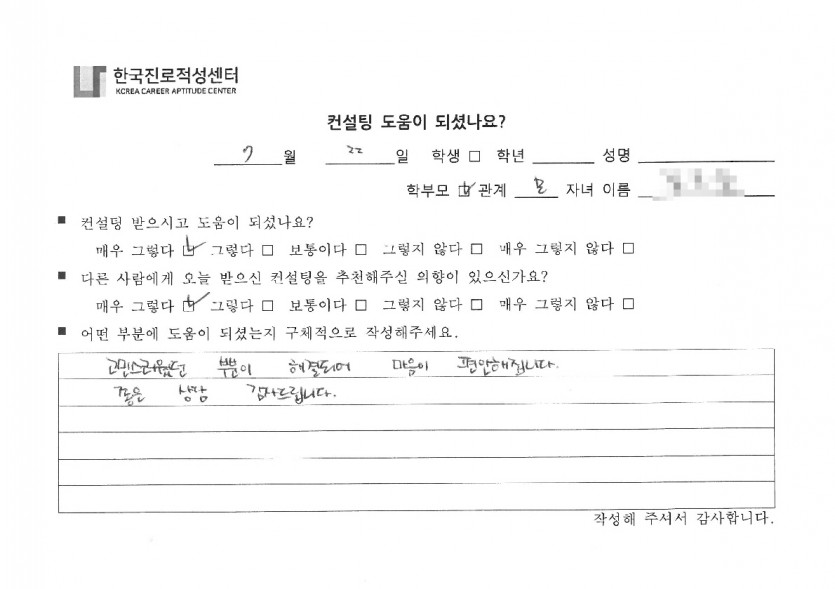 한국진로적성센터
KOREA CAREER APTITUDE CENTER
컨설팅 도움이 되셨나요?
7 월 22 일 학생 □ 학년 성명
학부모 ☑ 관계 모 자녀 이름
■ 컨설팅 받으시고 도움이 되셨나요?
매우 그렇다 ☑ 그렇다 □ 보통이다 □ 그렇지 않다 □ 매우 그렇지 않다 □
■ 다른 사람에게 오늘 받으신 컨설팅을 추천해주실 의향이 있으신가요?
매우 그렇다 ☑ 그렇다 □ 보통이다 □ 그렇지 않다 □ 매우 그렇지 않다 □
■ 어떤 부분에 도움이 되셨는지 구체적으로 작성해주세요.
고민스러웠던 뿌분이 해결되며 마음이 편안해집니다.
좋은 상담 감사드립니다.
작성해 주셔서 감사합니다.